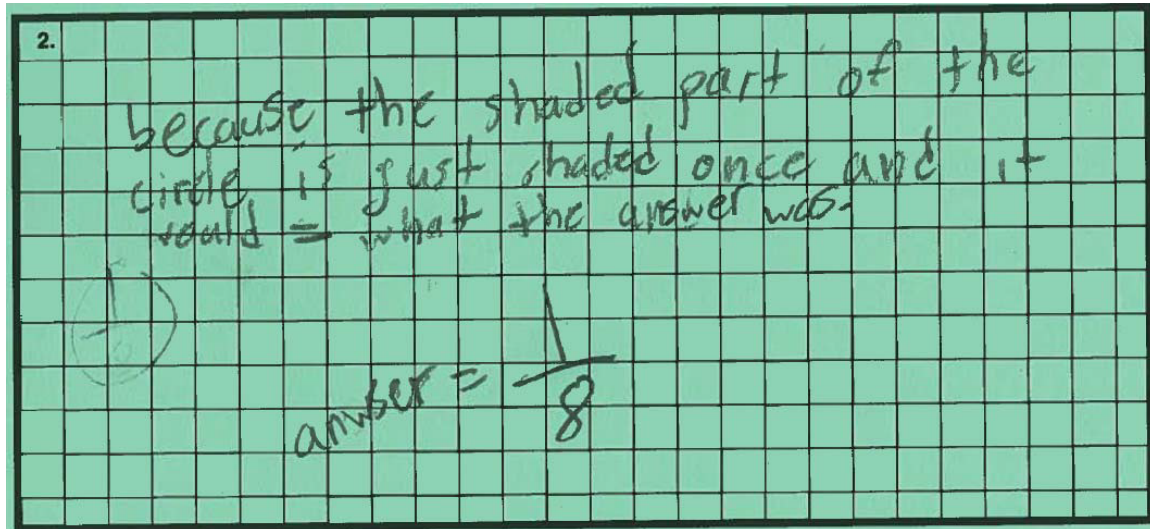 2.
because the shaded part of the
circle is just shaded once and it
would = what the answer was.
anwser = 1/8